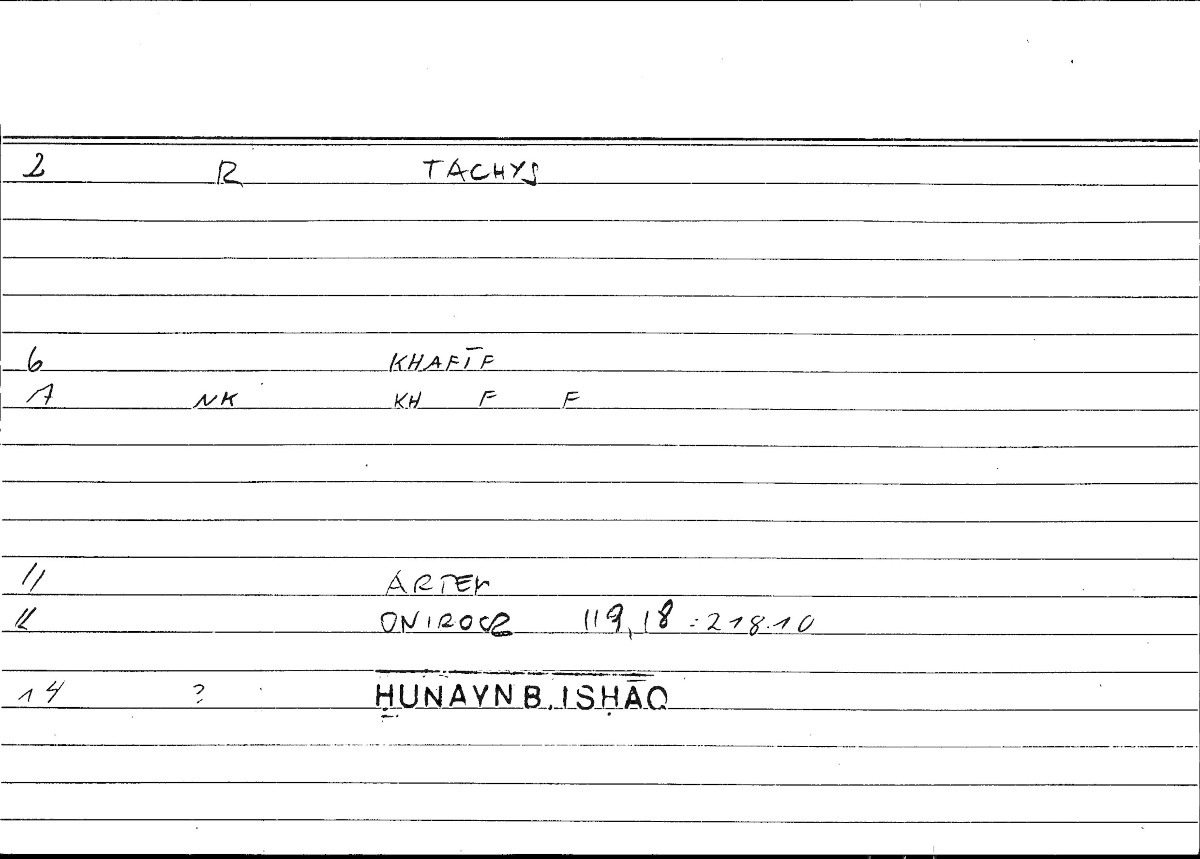 2 R TACHYS
6 KHAFĪF
7 NK KH F F
11 ARTEM
12 ONIROCR 119,18 : 218.10
14 ? ḤUNAYN B. ISḤĀQ